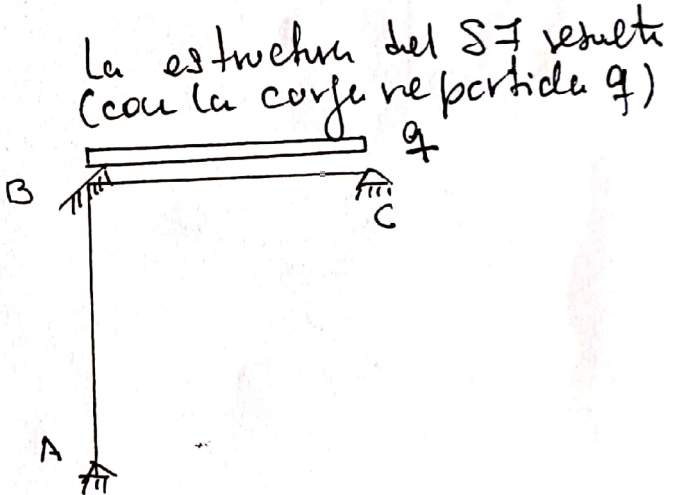 La estructura del SF resulta
(con la carga repartida q)
q
B
C
A